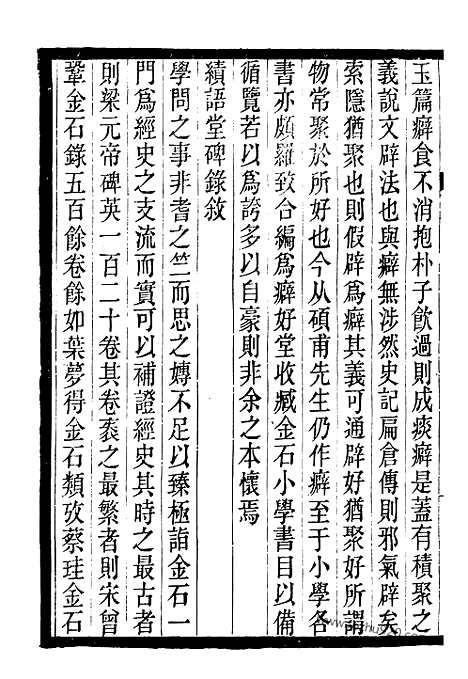 玉篇癖食不消抱朴子飲過則成痰癖是蓋有積聚之
義說文辟法也與癖無涉然史記扁倉傳則邪氣辟矣
索隱猶聚也則假辟為癖其義可通辟好猶聚好所謂
物常聚於所好也今从碩甫先生仍作癖至于小學各
書亦頗羅致合編為癖好堂收臧金石小學書目以備
循覽若以為誇多以自豪則非余之本懷焉
續語堂碑錄敘
學問之事非耆之竺而思之嫥不足以臻極詣金石一
門為經史之支流而實可以補證經史其時之最古者
則梁元帝碑英一百二十卷其卷袠之最繁者則宋曾
鞏金石錄五百餘卷餘如葉夢得金石類攷蔡珪金石